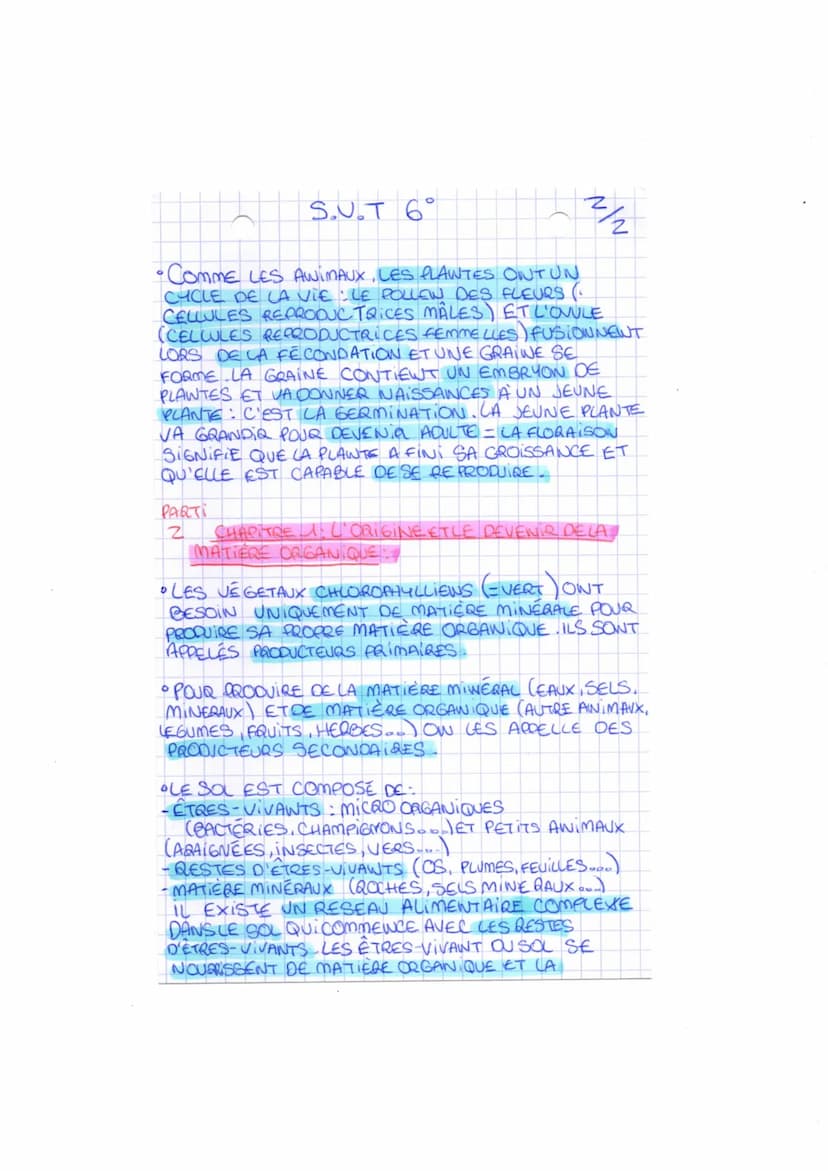 S.V.T 6°
2/2
• COMME LES ANIMAUX, LES PLANTES ONT UN
CYCLE DE LA VIE : LE POLLEN DES FLEURS (.
CELLULES REPRODUCTRICES MÂLES) ET L'OVULE
(CELLULES REPRODUCTRICES FEMMELLES) FUSIONNENT
LORS DE LA FÉCONDATION ET UNE GRAINE SE
FORME. LA GRAINE CONTIENT UN EMBRYON DE
PLANTES ET VA DONNER NAISSANCES À UN JEUNE
PLANTE : C'EST LA GERMINATION. LA JEUNE PLANTE
VA GRANDIR POUR DEVENIR ADULTE = LA FLORAISON
SIGNIFIE QUE LA PLANTE A FINI SA CROISSANCE ET
QU'ELLE EST CAPABLE DE SE REPRODUIRE.
PARTI
2 CHAPITRE 1 : L'ORIGINE ET LE DEVENIR DE LA
MATIÈRE ORGANIQUE :
• LES VÉGETAUX CHLOROPHYLLIENS (=VERT) ONT
BESOIN UNIQUEMENT DE MATIÈRE MINÉRALE POUR
PRODUIRE SA PROPRE MATIÈRE ORGANIQUE. ILS SONT
APPELÉS PRODUCTEURS PRIMAIRES.
• POUR PRODUIRE DE LA MATIÈRE MINÉRAL (EAUX, SELS,
MINERAUX) ET DE MATIÈRE ORGANIQUE (AUTRE ANIMAUX,
LEGUMES, FRUITS, HERBES...) ON LES APPELLE DES
PRODICTEURS SECONDAIRES.
• LE SOL EST COMPOSÉ DE :
- ÊTRES-VIVANTS : MICRO ORGANIQUES
(BACTÉRIES, CHAMPIGNONS....) ET PETITS ANIMAUX
(ARAIGNÉES, INSECTES, VERS....)
- RESTES D'ÊTRES-VIVANTS (OS, PLUMES, FEUILLES....)
- MATIÈRE MINÉRAUX (ROCHES, SELS MINERAUX...)
IL EXISTE UN RESEAU ALIMENTAIRE COMPLEXE
DANS LE SOL QUI COMMENCE AVEC LES RESTES
D'ÊTRES-VIVANTS. LES ÊTRES-VIVANT DU SOL SE
NOURISSENT DE MATIÈRE ORGANIQUE ET LA